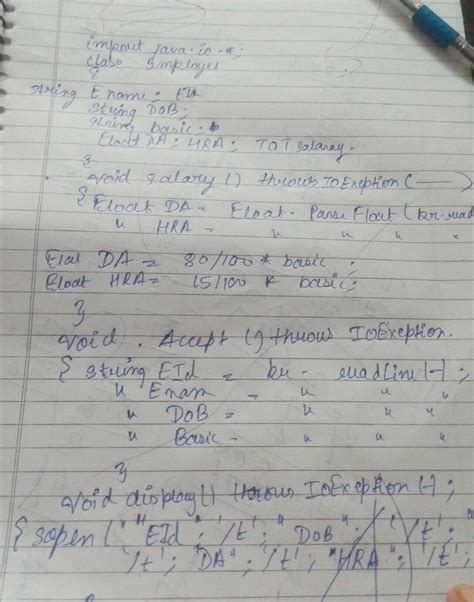 import java.io.*;
class Employee
{
string Ename; EId
String DOB;
String basic;
Float DA; HRA; TOT Salary.
}
void salary () throws IoExeption (—)
{ Float DA = Float. Parse Float (br.read
" HRA = " " " "
Float DA = 80/100 * basic;
Float HRA = 15/100 * basic;
}
void. Accept () throws IoExeption.
{ string EId = br. readLine (-);
" Enam = " " "
" DOB = " " "
" Basic - " " "
}
void display () throws IoExeption (-);
{ sopen (" "EId"; '/t'; " DOB"; '/t';
'/t'; "DA"; '/t'; "HRA"; '/t';